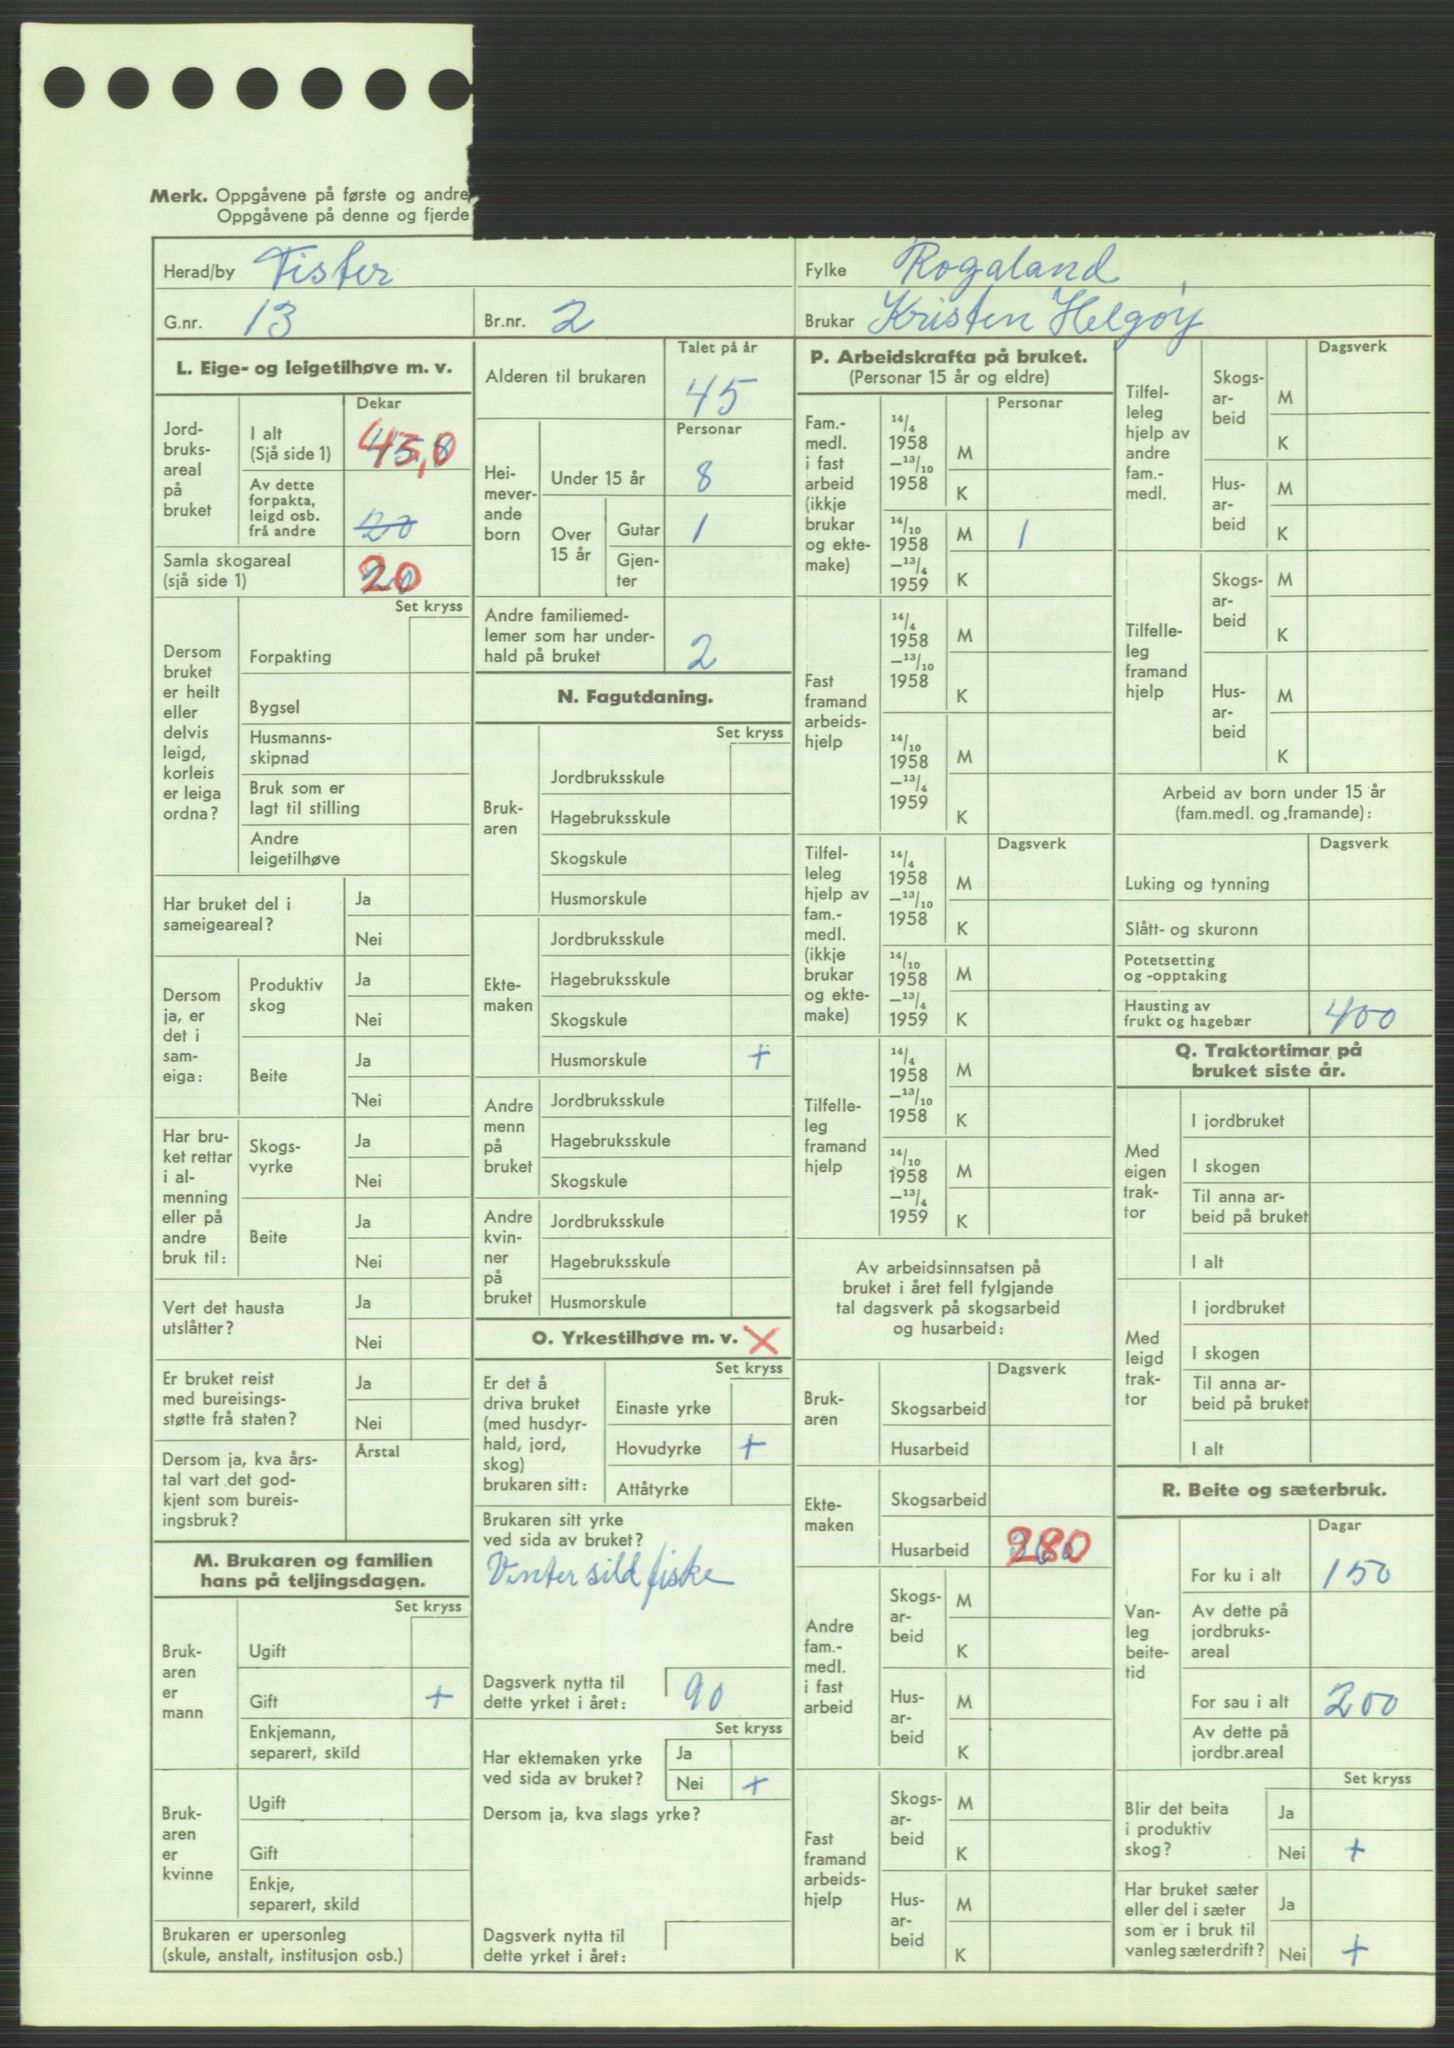 Merk. Oppgåvene på første og andre
Oppgåvene på denne og fjerde
Herad/by Fister
Fylke Rogaland
G.nr. 13
Br.nr. 2
Brukar Kristen Helgøy
L. Eige- og leigetilhøve m. v.
Dekar
Jord-
bruks-
areal
på
bruket
I alt
(Sjå side 1)
Av dette
forpakta,
leigd osb.
frå andre
20
Samla skogareal
(sjå side 1) 20
Set kryss
Dersom
bruket
er heilt
eller
delvis
leigd,
korleis
er leiga
ordna?
Forpakting
Bygsel
Husmanns-
skipnad
Bruk som er
lagt til stilling
Andre
leigetilhøve
Har bruket del i
sameigeareal?
Ja
Nei
Dersom
ja, er
det i
sam-
eiga:
Produktiv
skog
Ja
Nei
Beite
Ja
Nei
Har bru-
ket rettar
i al-
menning
eller på
andre
bruk til:
Skogs-
vyrke
Ja
Nei
Beite
Ja
Nei
Vert det hausta
utslåtter?
Ja
Nei
Er bruket reist
med bureisings-
støtte frå staten?
Ja
Nei
Dersom ja, kva års-
tal vart det god-
kjent som bureis-
ingsbruk?
Årstal
M. Brukaren og familien
hans på teljingsdagen.
Set kryss
Bruk-
aren
er
mann
Ugift
Gift +
Enkjemann,
separert, skild
Bruk-
aren
er
kvinne
Ugift
Gift
Enkje,
separert, skild
Brukaren er upersonleg
(skule, anstalt, institusjon osb.)
Talet på år
Alderen til brukaren 45
Personar
Hei-
mever-
ande
born
Under 15 år 8
Over
15 år
Gutar 1
Gjen-
ter
Andre familiemed-
lemer som har under-
hald på bruket 2
N. Fagutdaning.
Set kryss
Bruk-
aren
Jordbruksskule
Hagebruksskule
Skogskule
Husmorskule
Ekte-
maken
Jordbruksskule
Hagebruksskule
Skogskule
Husmorskule +
Andre
menn
på
bruket
Jordbruksskule
Hagebruksskule
Skogskule
Andre
kvin-
ner
på
bruket
Jordbruksskule
Hagebruksskule
Husmorskule
O. Yrkestilhøve m. v. X
Set kryss
Er det å
driva bruket
(med husdyr-
hald, jord,
skog)
brukaren sitt:
Einaste yrke
Hovudyrke +
Attåtyrke
Brukaren sitt yrke
ved sida av bruket?
Vintersildfiske
Dagsverk nytta til
dette yrket i året: 90
Set kryss
Har ektemaken yrke
ved sida av bruket?
Ja
Nei +
Dersom ja, kva slags yrke?
Dagsverk nytta til
dette yrket i året:
P. Arbeidskrafta på bruket.
(Personar 15 år og eldre)
Personar
Fam.-
medl.
i fast
arbeid
(ikkje
brukar
og ekte-
make)
14/4
1958
–13/10
1958
M
K
14/10
1958
–13/4
1959
M 1
K
Fast
framand
arbeids-
hjelp
14/4
1958
–13/10
1958
M
K
14/10
1958
–13/4
1959
M
K
Dagsverk
Tilfel-
leleg
hjelp av
fam.-
medl.
(ikkje
brukar
og ekte-
make)
14/4
1958
–13/10
1958
M
K
14/10
1958
–13/4
1959
M
K
Tilfelle-
leg
framand
hjelp
14/4
1958
–13/10
1958
M
K
14/10
1958
–13/4
1959
M
K
Av arbeidsinnsatsen på
bruket i året fell fylgjande
tal dagsverk på skogsarbeid
og husarbeid:
Dagsverk
Bruk-
aren
Skogsarbeid
Husarbeid
Ekte-
maken
Skogsarbeid
Husarbeid 280
Andre
fam.-
medl.
i fast
arbeid
Skogs-
ar-
beid
M
K
Hus-
ar-
beid
M
K
Fast
framand
arbeids-
hjelp
Skogs-
ar-
beid
M
K
Hus-
ar-
beid
M
K
Dagsverk
Tilfel-
leleg
hjelp av
andre
fam.-
medl.
Skogs-
ar-
beid
M
K
Hus-
ar-
beid
M
K
Tilfelle-
leg
framand
hjelp
Skogs-
ar-
beid
M
K
Hus-
ar-
beid
M
K
Arbeid av born under 15 år
(fam.medl. og framande):
Dagsverk
Luking og tynning
Slått- og skuronn
Potetsetting
og -opptaking
Hausting av
frukt og hagebær 400
Q. Traktortimar på
bruket siste år.
Med
eigen
trak-
tor
I jordbruket
I skogen
Til anna ar-
beid på bruket
I alt
Med
leigd
trak-
tor
I jordbruket
I skogen
Til anna ar-
beid på bruket
I alt
R. Beite og sæterbruk.
Dagar
Van-
leg
beite-
tid
For ku i alt 150
Av dette på
jordbruks-
areal
For sau i alt 200
Av dette på
jordbr.areal
Set kryss
Blir det beita
i produktiv
skog?
Ja
Nei +
Har bruket sæter
eller del i sæter
som er i bruk til
vanleg sæterdrift?
Ja
Nei +